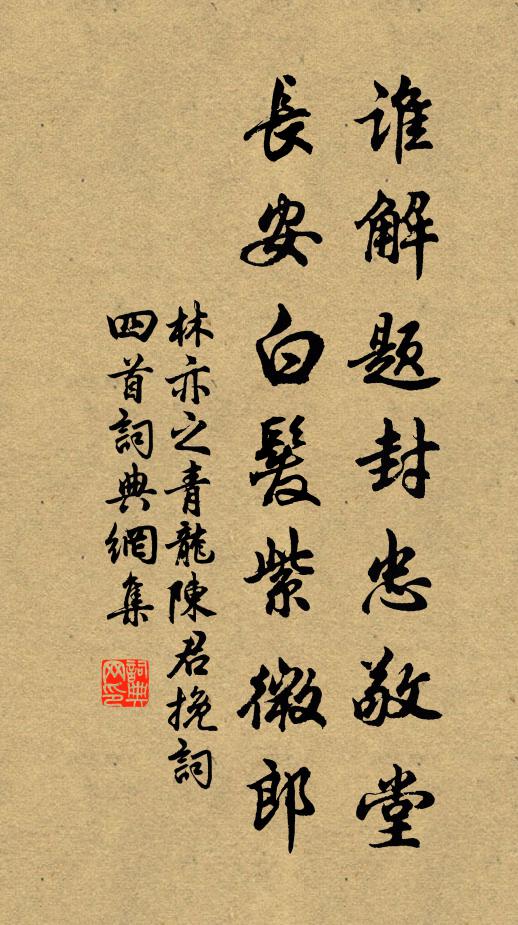 誰解題封忠敬堂
長安白髮紫微郎
林亦之青龍陳君挽詞
四首詞典網集
詞典
网印